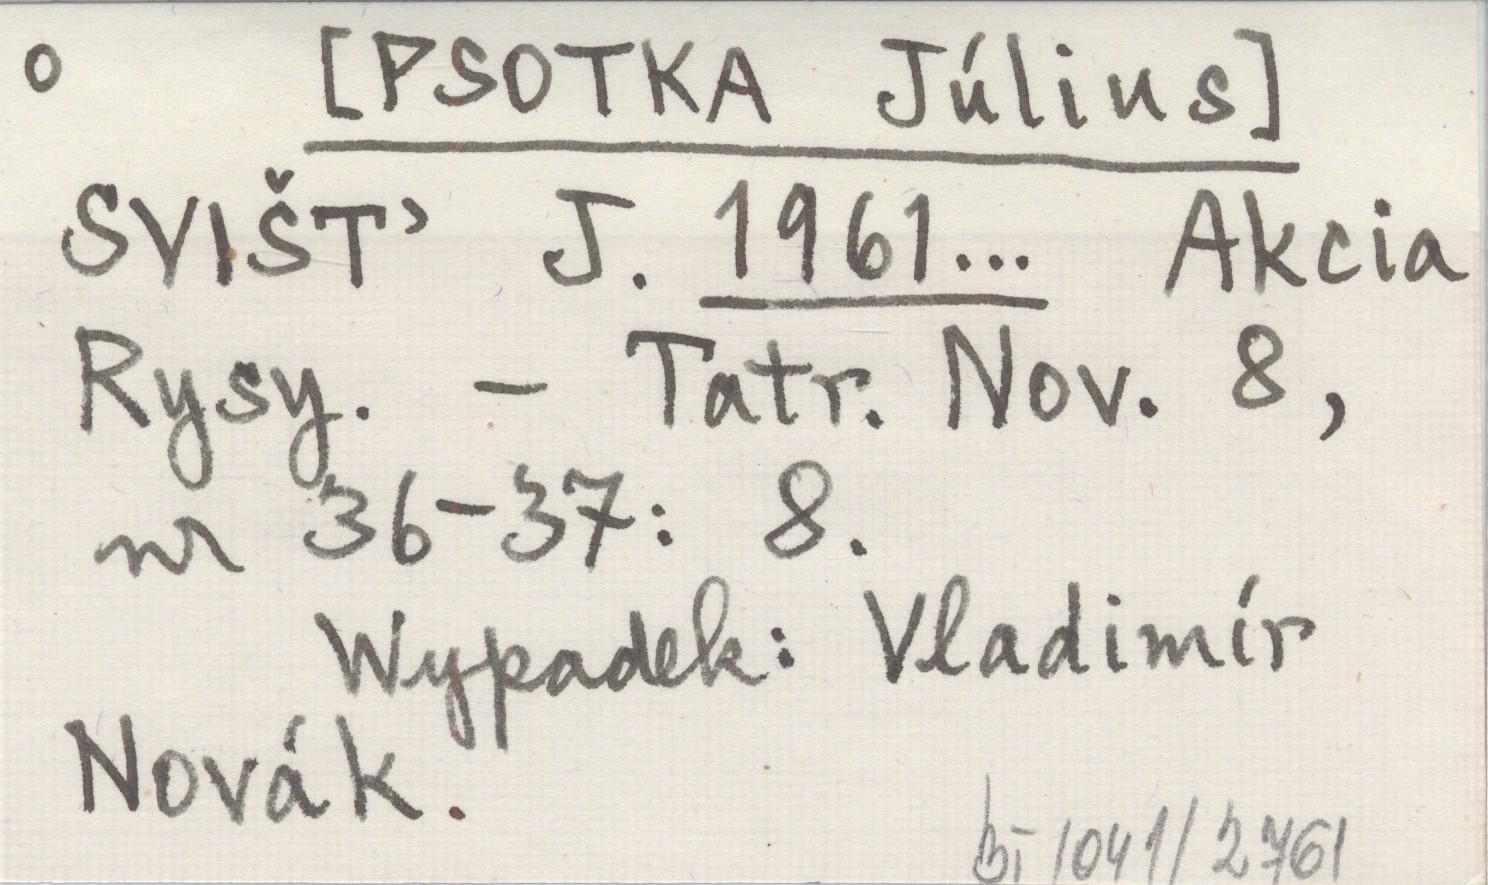 o [PSOTKA Július]
SVIŠŤ J. 1961... Akcia
Rysy. – Tatr. Nov. 8,
nr 36-37: 8.
Wypadek: Vladimír
Novák.
bī 1041/2761